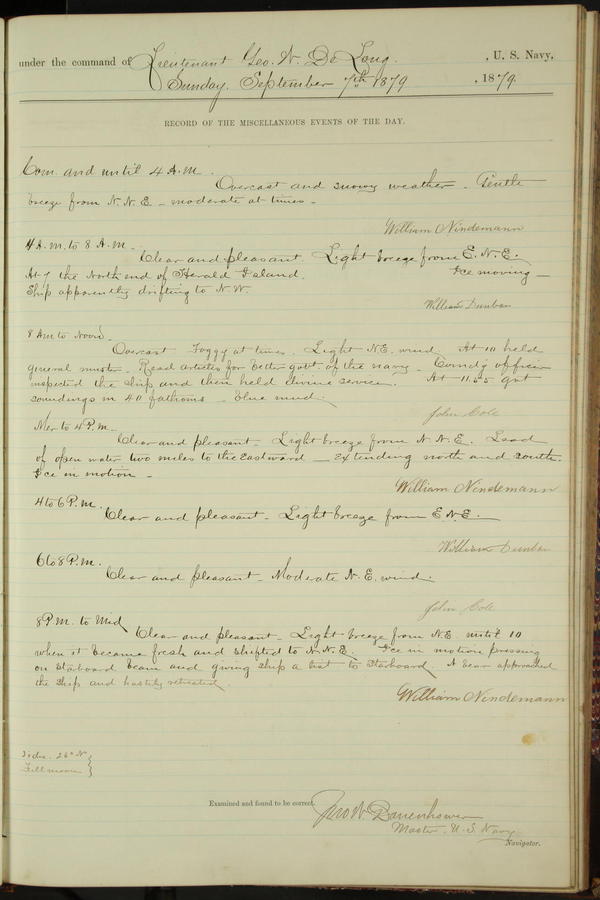 under the command of Lieutenant Geo. W. De Long. , U. S. Navy,
Sunday. September 7th 1879 , 1879.
RECORD OF THE MISCELLANEOUS EVENTS OF THE DAY.
Com. and until 4 A.M.
Overcast and snowy weather - Gentle
breeze from N.N.E. - moderate at times -
William Nindemann
4 A.M. to 8 A.M.
Clear and pleasant Light breeze from E.N.E.
At 7 the North end of Herald Island. Ice moving -
Ship apparently drifting to N.W.
William Dunbar
8 AM to Noon
Overcast Foggy at times. Light NE. wind. At 10 held
general muster. Read articles for better govt. of the navy. Comd'g officer
inspected the ship and then held divine service. At 11.55 got
soundings in 40 fathoms - blue mud.
John Cole
Mer to 4 P.M.
Clear and pleasant - Light breeze from N.N.E. Lead
of open water two miles to the Eastward - extending north and south.
Ice in motion -
William Nindemann
4 to 6 P.M.
Clear and pleasant - Light breeze from E.N.E. -
William Dunbar
6 to 8 P.M.
Clear and pleasant - Moderate N.E. wind.
John Cole
8 P.M. to Mid
Clear and pleasant - Light breeze from N.E. until 10
when it became fresh and shifted to N.N.E. Ice in motion pressing
on Starboard beam and giving ship a list to Starboard. A bear approached
the ship and hastily retreated.
William Nindemann
26° N
Full moon
Examined and found to be correct.
Jno W. Danenhower
Master. U.S. Navy
Navigator.